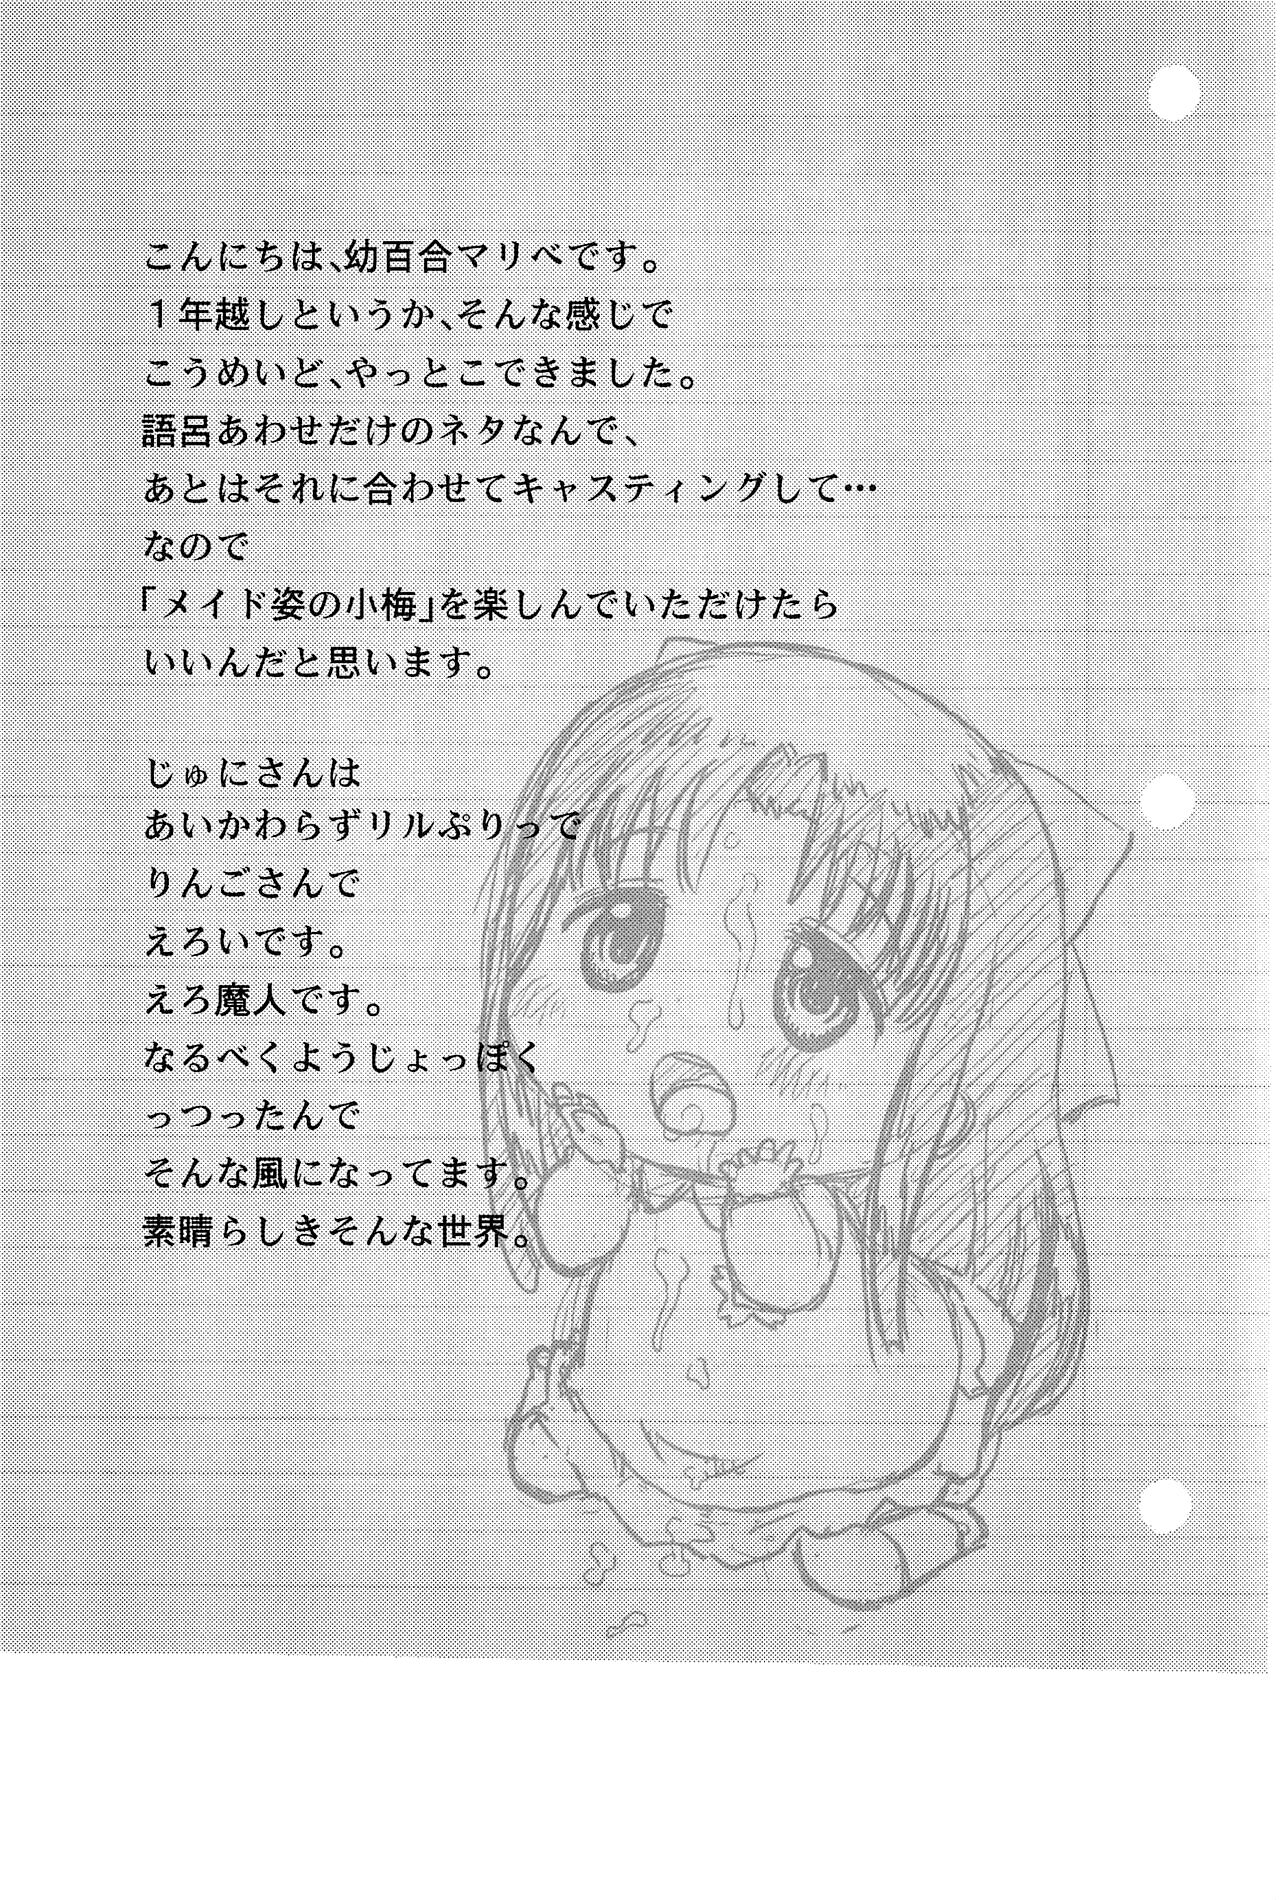 こんにちは、幼百合マリベです。
１年越しというか、そんな感じで
こうめいど、やっとこできました。
語呂あわせだけのネタなんで、
あとはそれに合わせてキャスティングして…
なので
「メイド姿の小梅」を楽しんでいただけたら
いいんだと思います。
じゅにさんは
あいかわらずリルぷりって
りんごさんで
えろいです。
えろ魔人です。
なるべくようじょっぽく
っつったんで
そんな風になってます。
素晴らしきそんな世界。